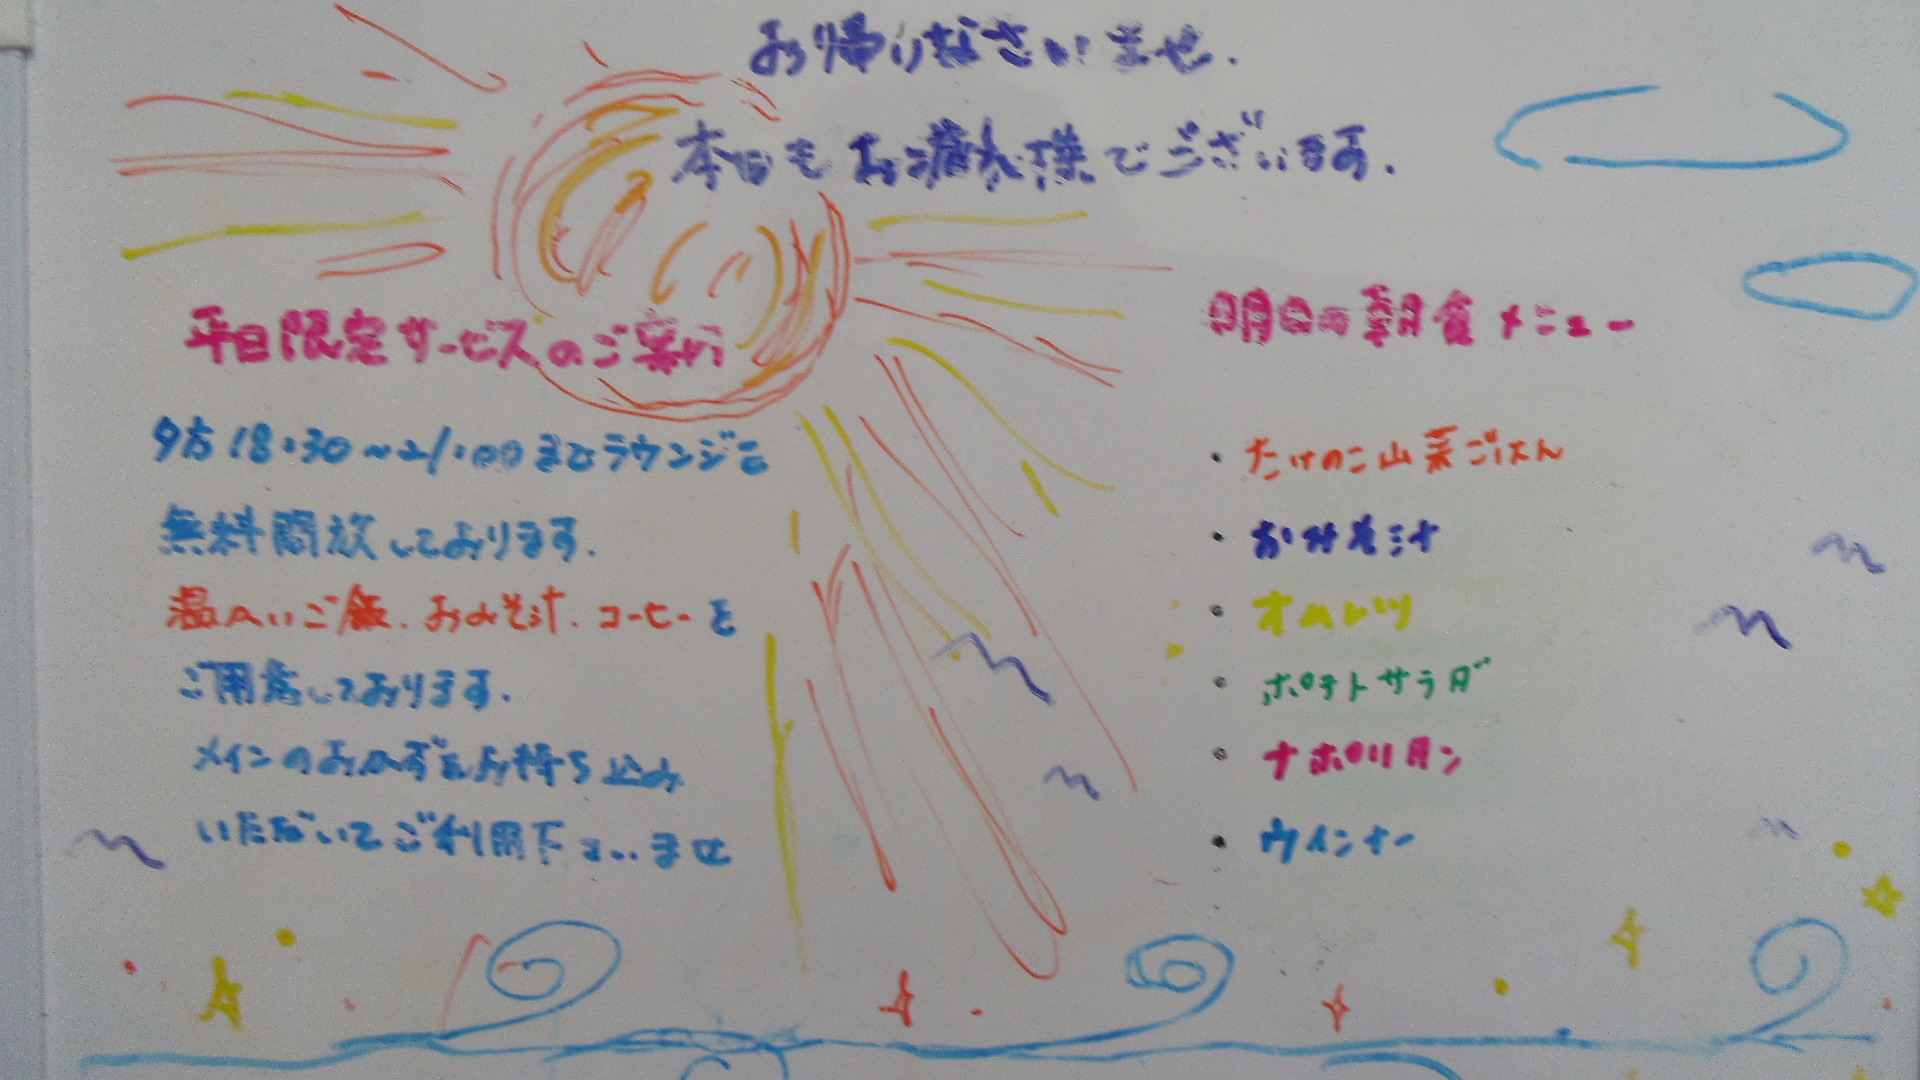 お帰りなさいませ.
本日もお疲れ様でございます.
平日限定サービスのご案内
夕方18:30～21:00までラウンジを
無料開放しております.
温かいご飯.おみそ汁.コーヒーを
ご用意しております.
メインのおかずをお持ち込み
いただいてご利用下さいませ
明日の朝食メニュー
・たけのこ山菜ごはん
・おみそ汁
・オムレツ
・ポテトサラダ
・ナポリタン
・ウインナー